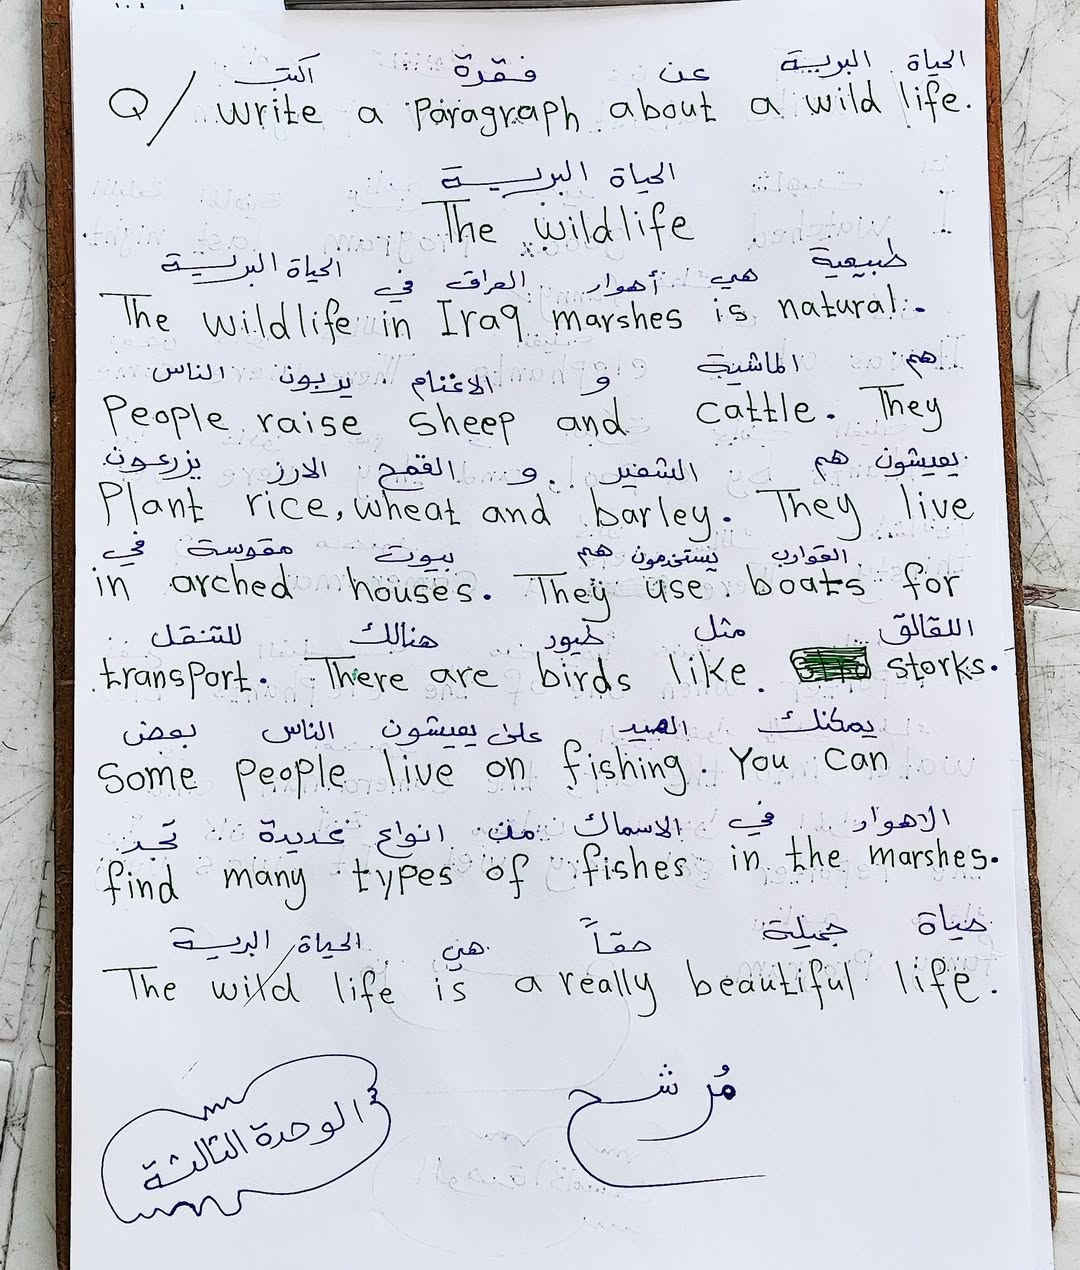 اكتب فقرة عن الحياة البرية
Q/ Write a Paragraph about a wild life.
الحياة البرية
The wildlife
الحياة البرية في العراق أهوار هي طبيعية
The wildlife in Iraq marshes is natural.
الناس يربون الاغنام و الماشية هم
People raise sheep and cattle. They
يزرعون الارز القمح و الشعير هم يعيشون
Plant rice, wheat and barley. They live
في مقوسة بيوت هم يستخدمون القوارب
in arched houses. They use boats for
للتنقل هنالك طيور مثل اللقالق
transport. There are birds like storks.
بعض الناس يعيشون على الصيد يمكنك
Some people live on fishing. You can
تجد عديدة انواع من الاسماك في الاهوار
find many types of fishes in the marshes.
الحياة البرية هي حقاً جميلة حياة
The wild life is a really beautiful life.
مُرشح
الوحدة الثالثة